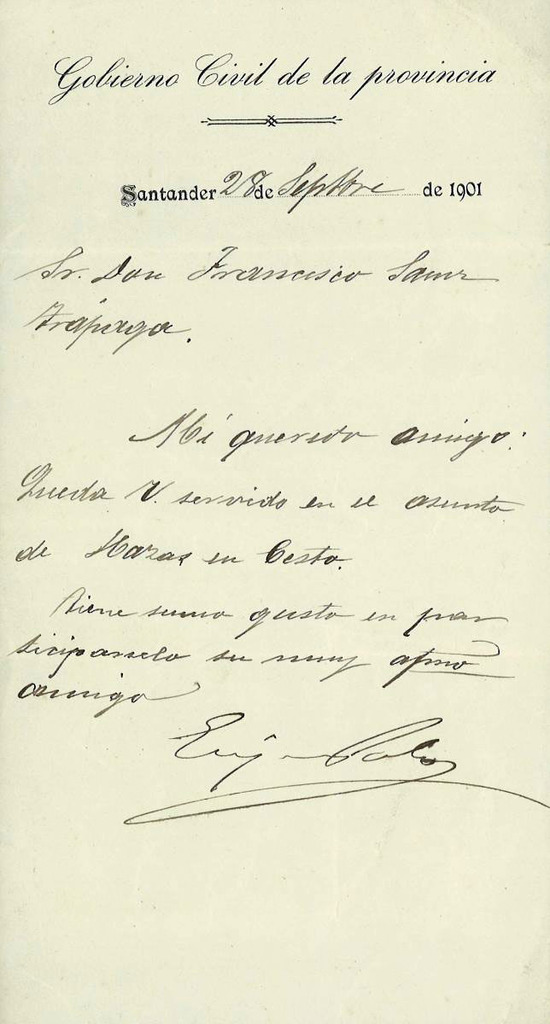 Gobierno Civil de la provincia
Santander 28 de Septbre de 1901
Sr. Don Francisco Sainz
Trápaga.
Mi querido amigo:
Queda V. servido en el asunto
de Hazas en Cesto.
Tiene sumo gusto en par
ticiparselo su muy afmo
amigo